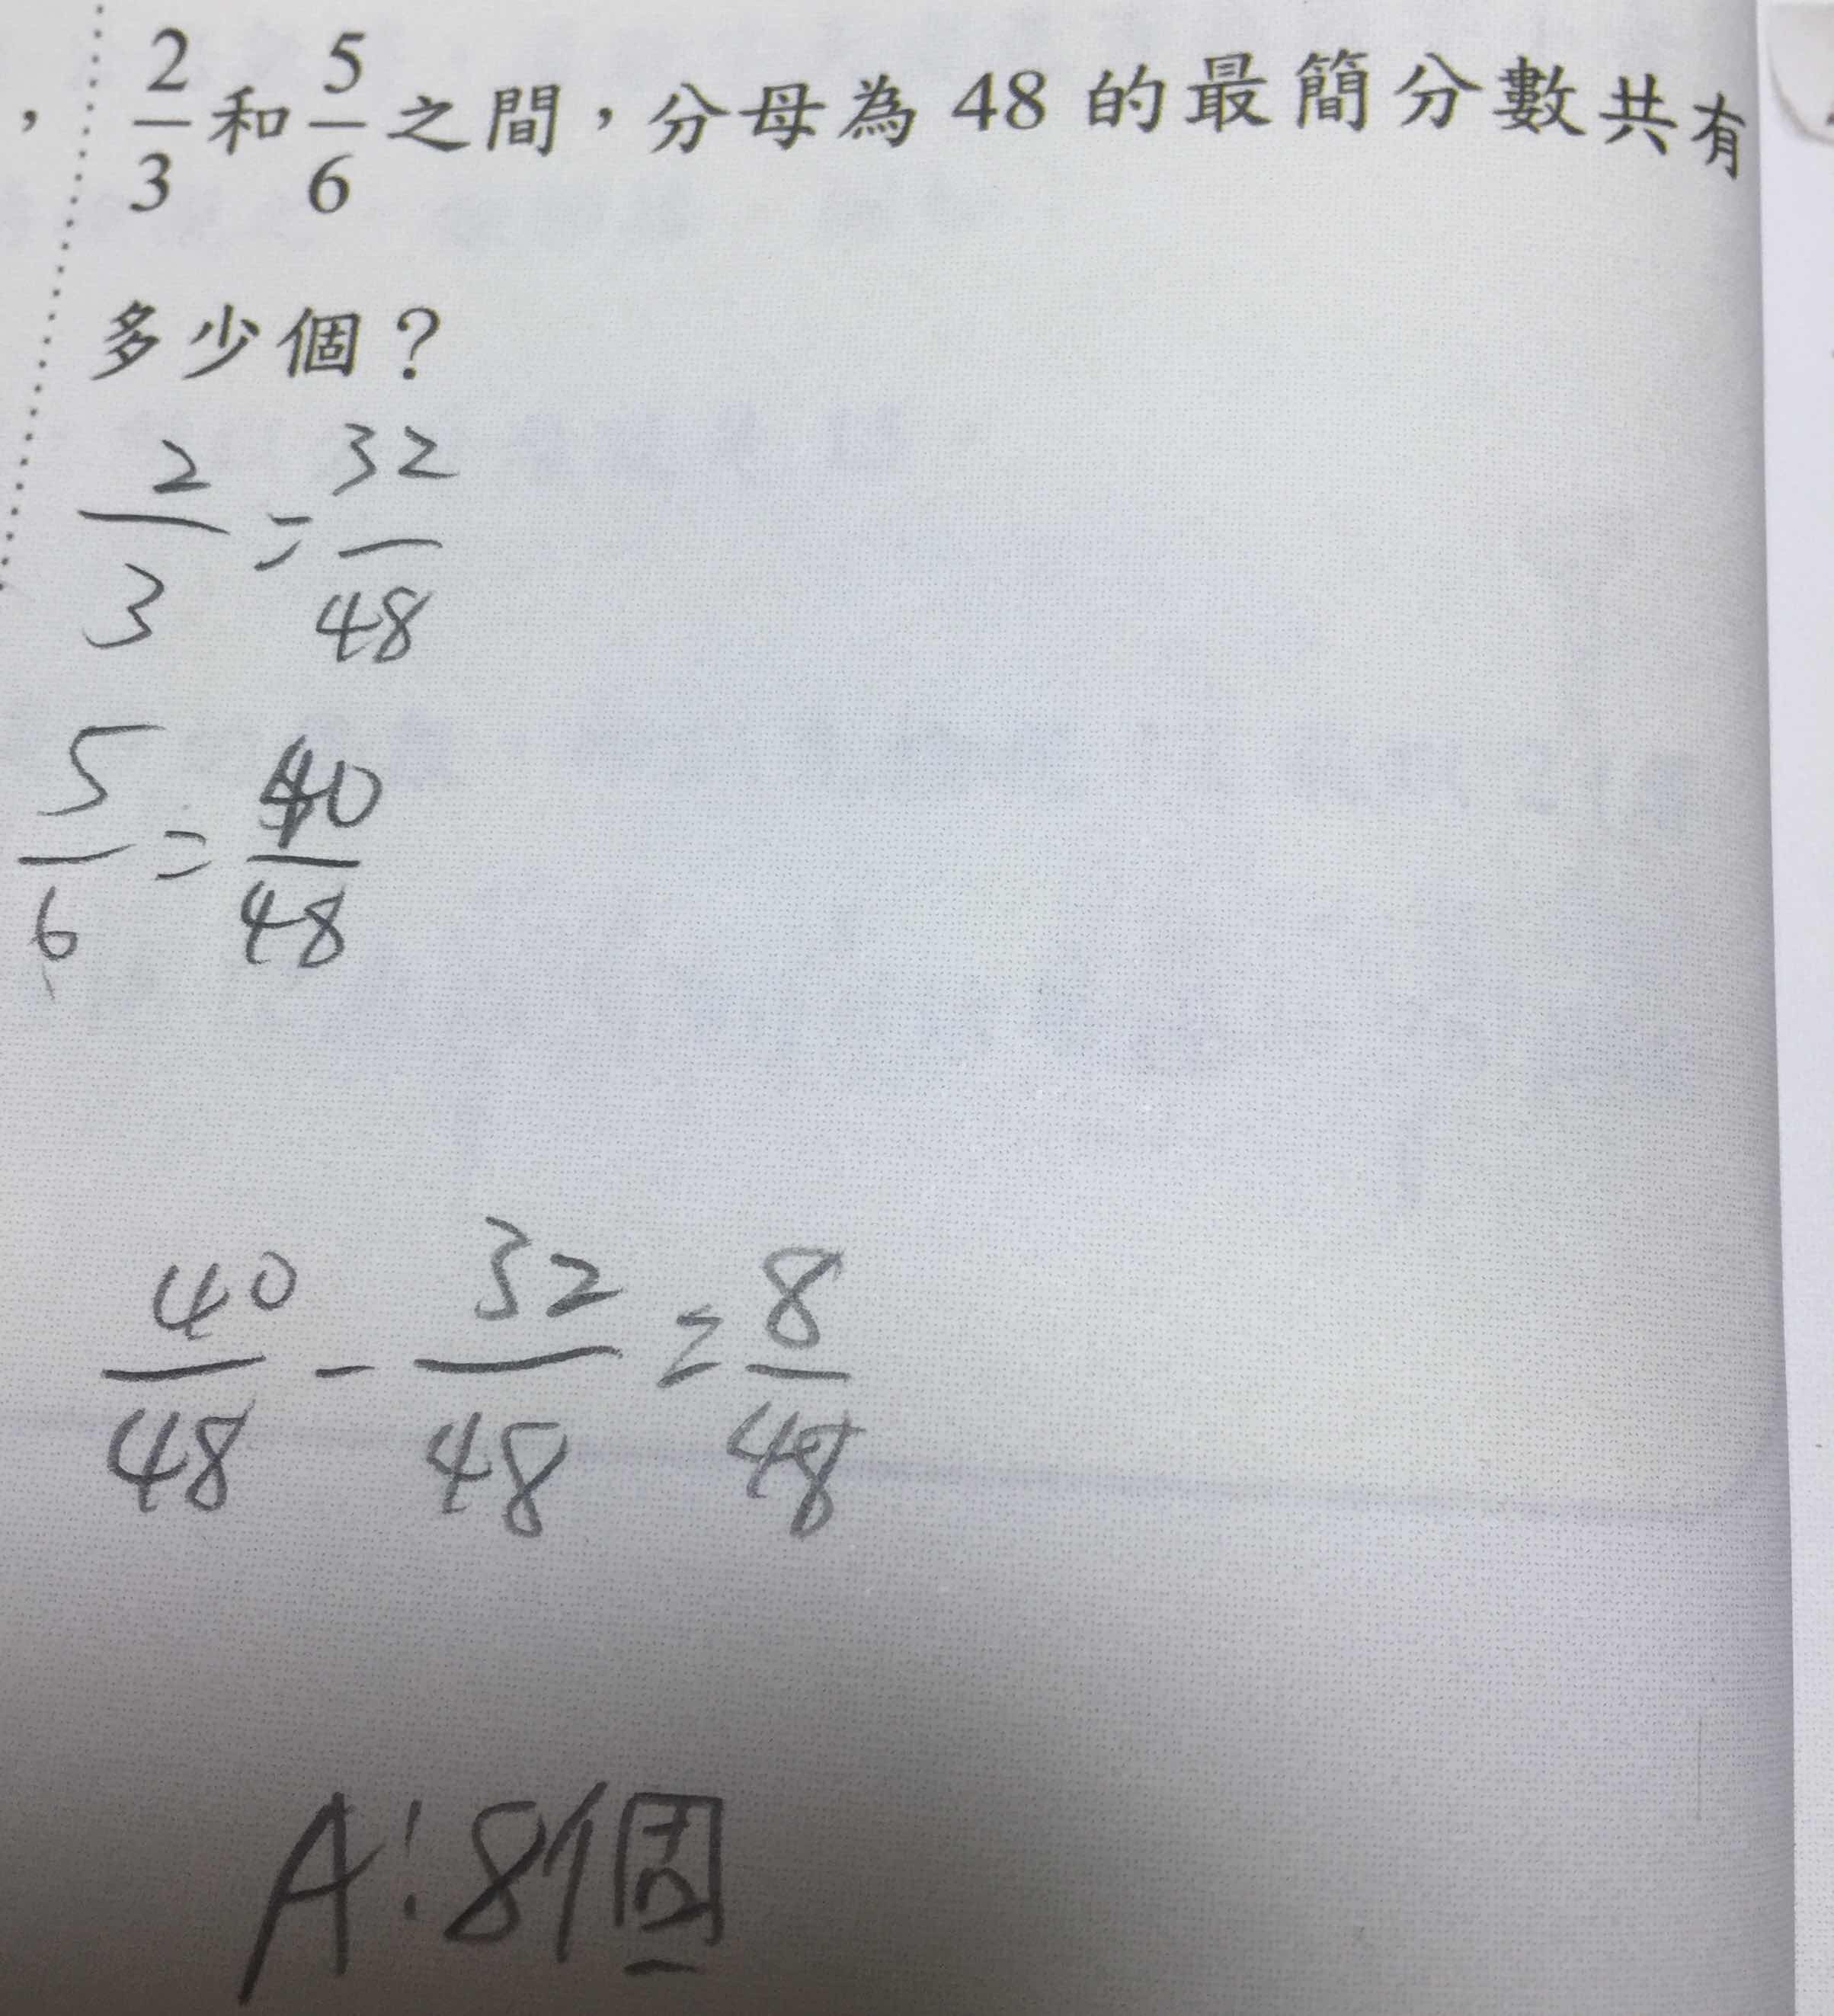 ， 2/3 和 5/6 之間，分母為 48 的最簡分數共有
多少個？
2/3 = 32/48
5/6 = 40/48
40/48 - 32/48 = 8/48
A：8個